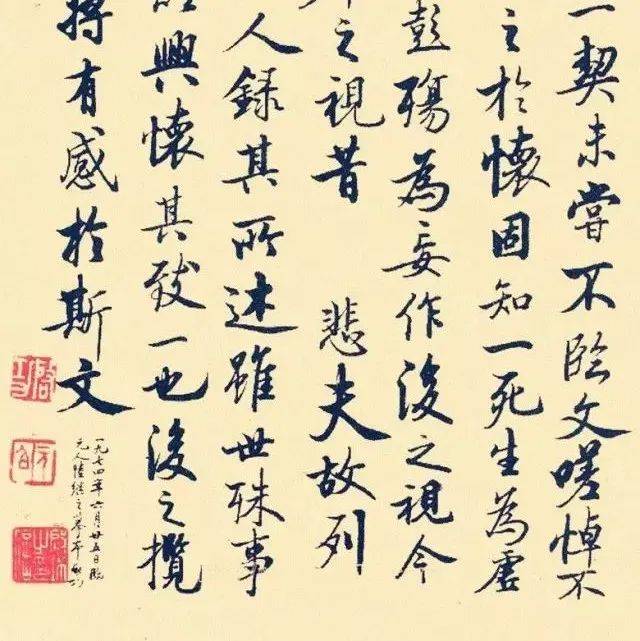 一契未嘗不臨文嗟悼不
之於懷固知一死生為虛
彭殤為妄作後之視今
之視昔 悲夫故列
人錄其所述雖世殊事
興懷其致一也後之攬
將有感於斯文
一九七四年六月廿五日臨
元人陸繼之摹本 啟功
啟功